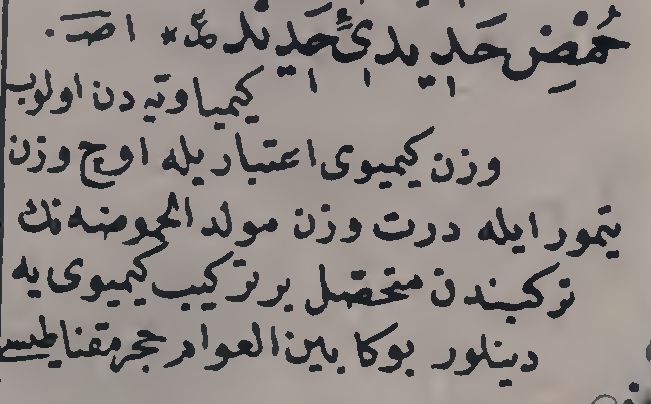 حُمْضِ حَدِيدِئِ حَدِيدْ مذ* اصـ.
كيمياويه دن اولوب
وزن كيميوى اعتباريله اوچ وزن
تيمور ايله درت وزن مولد الحموضه نك
تركيبندن متحصل بر تركيب كيميوى يه
دينلور بوكا بين العوام حجر مقناطيس